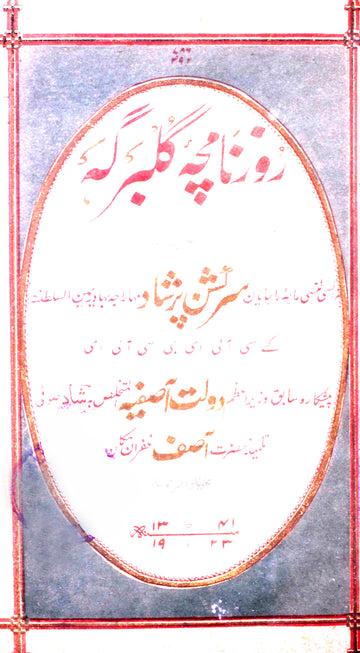 ۷۸۶
۴۹۲
روزنامچہ گلبرگہ
سرکشن پرشاد مہاراجہ بہادر یمین السلطنۃ
کے سی آئی ای جی سی آئی ای
پیشکار و سابق وزیر اعظم دولت آصفیہ المتخلص بہ شاد صوفی
تلمیذ حضرت آصف غفران مکان
۱۳ ۴۱ ھ
۱۹ ۲۳